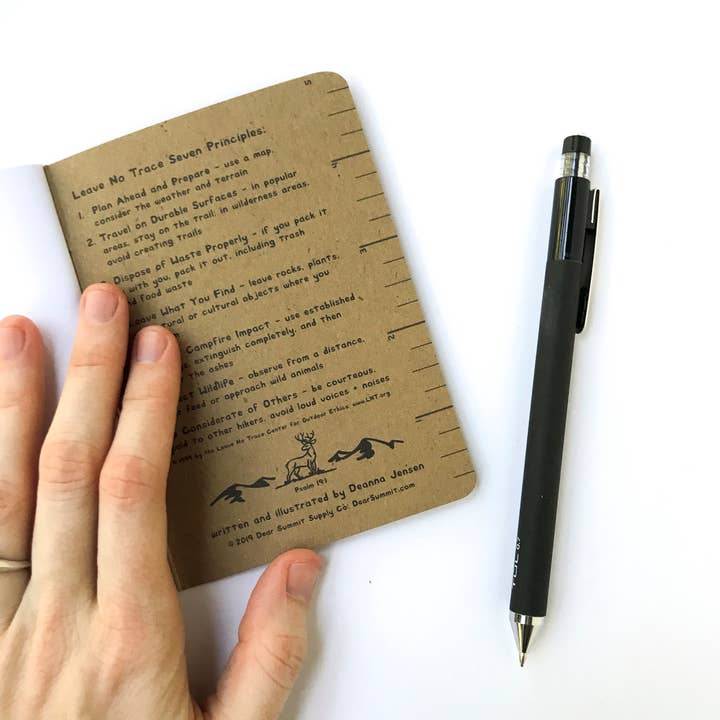 5
Leave No Trace Seven Principles:
1. Plan Ahead and Prepare - use a map,
consider the weather and terrain
2. Travel on Durable Surfaces - in popular
areas, stay on the trail; in wilderness areas,
avoid creating trails
Dispose of Waste Properly - if you pack it
with you, pack it out, including trash
food waste
Leave What You Find - leave rocks, plants,
or cultural objects where you
Campfire Impact - use established
extinguish completely, and then
the ashes
Wildlife - observe from a distance,
feed or approach wild animals
Considerate of Others - be courteous,
to other hikers, avoid loud voices + noises
by the Leave No Trace Center for Outdoor Ethics, www.LNT.org
Psalm 19:1
written and illustrated by Deanna Jensen
© 2019 Dear Summit Supply Co. DearSummit.com
4
3
2
0.7